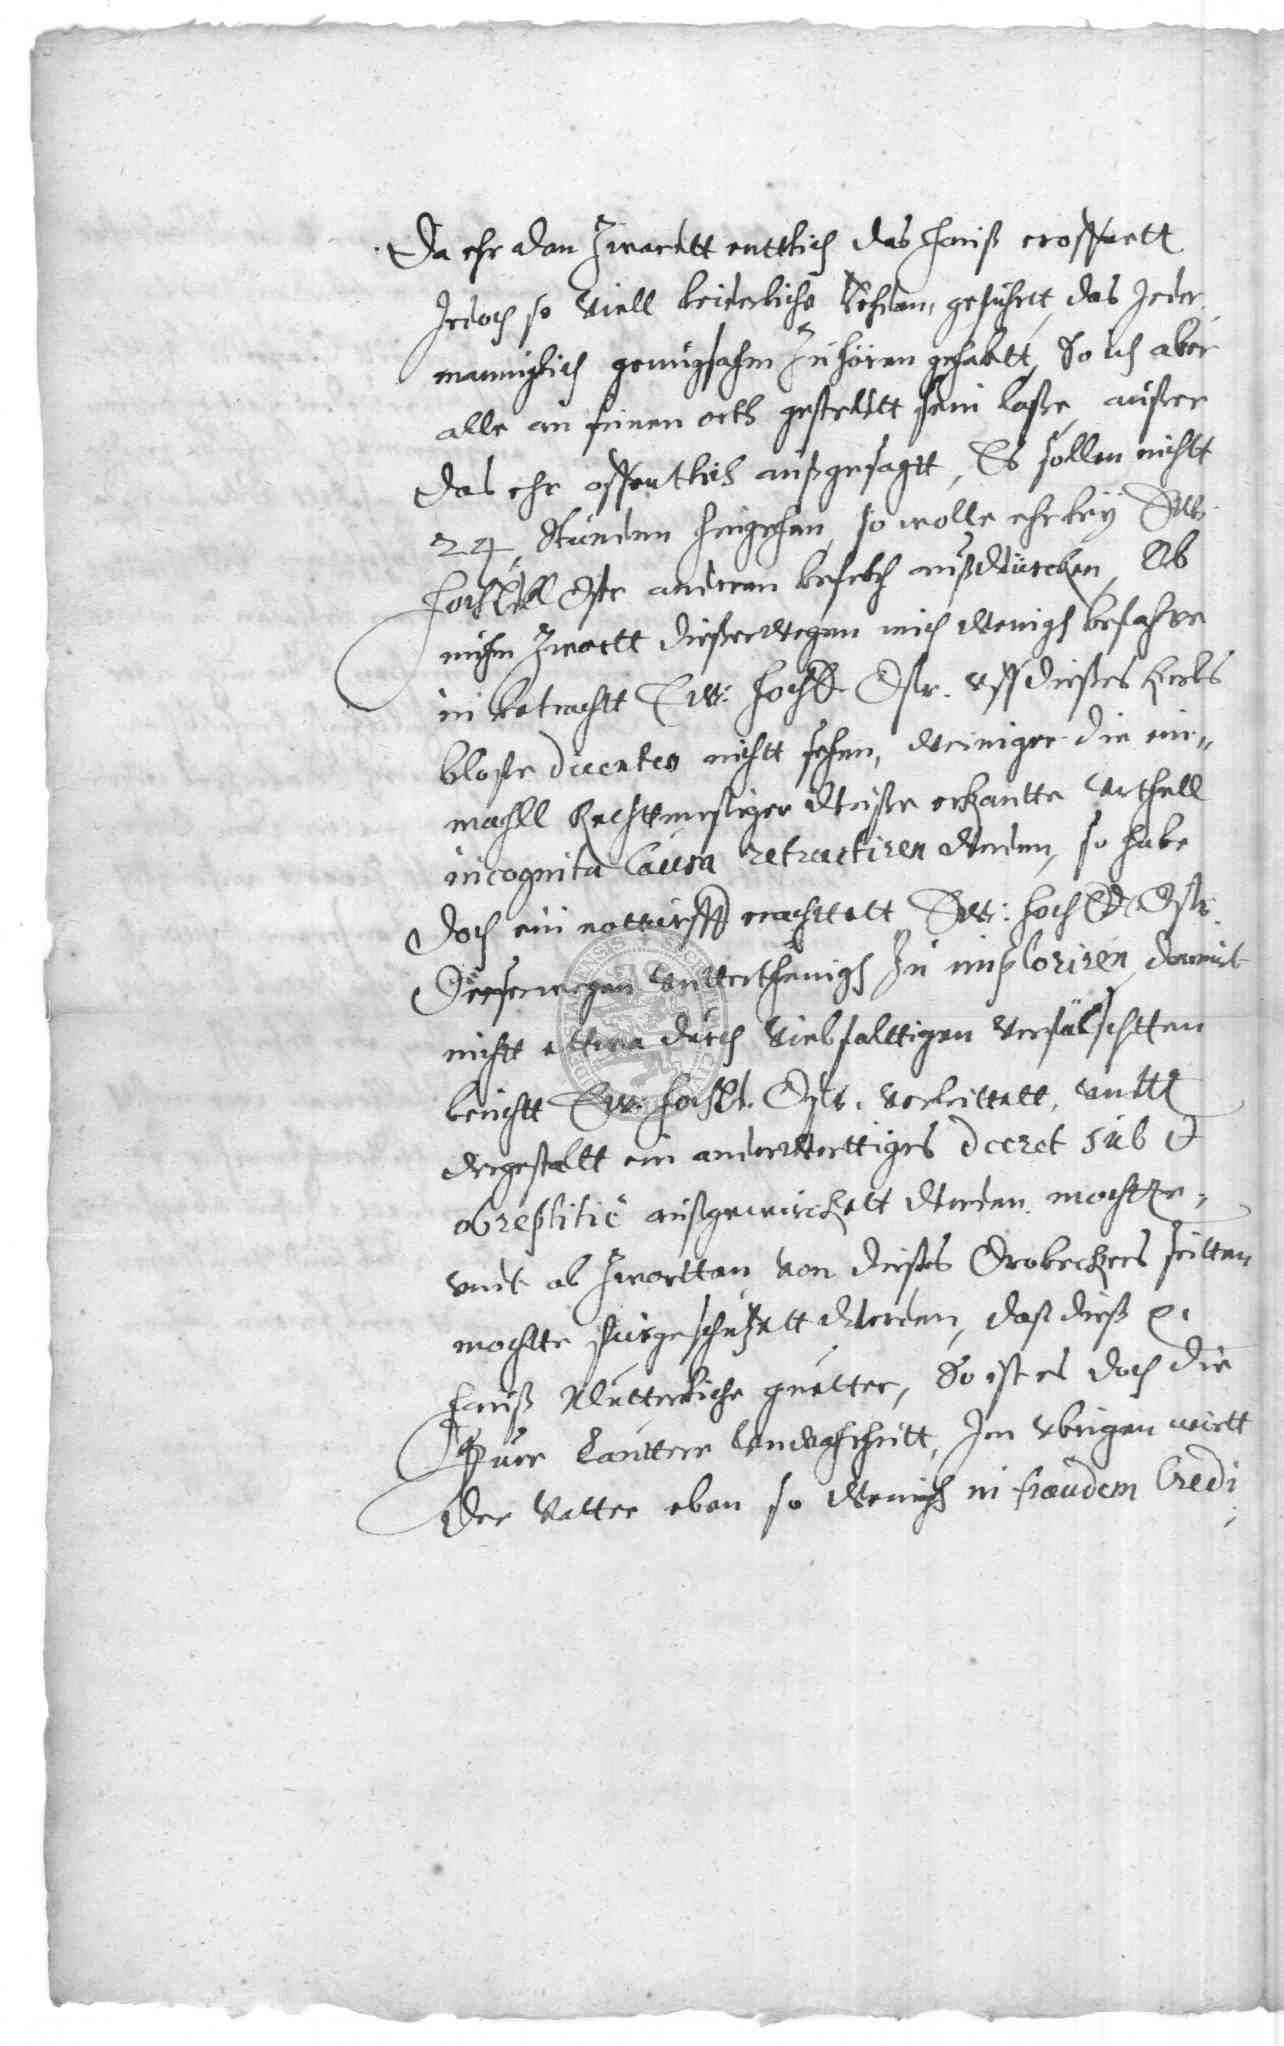 Da ehr dan Zwartt enttlich das Hauß eroffnett
Jedoch so Viell leiderliche Reden, gefuhrtt, das Jeder
manniglich genugsahm Zu hören gehabtt, So ich aber
alle an seinen orth gestellett sein laße, außer
das ehr offentlich außgesagtt, Es sollen nichtt
24 Stunden hingehen, so wolle ehr bey Ew.
Gstr. anderen befelch außwürcken, Ob
nuhn Zwartt dießerwegen mich wenigh befahre
in betrachtt Ew: Hoch Gstr. vff dießes Kerls
bloße nichtt sehen, weiniger die ein„
mahll Rechttmeßiger weiße erkantte Vrthell
incognita Causa retractiren werden, so habe
doch ein notturfft erachttett Ew: Hoch Gstr.
Dießerwegen Vntterthenigh Zu imploriren damit
nichtt ettwa durch Vielfalttigen Verfälschtten
berichtt Ew. Gstr. Verleittett, Vndtt
dergestaltt ein anderwerttiges decret sub et
obreptitiè außgewirckett werden mochtte,
Vndt ob Zwartten Von dießes seitten
mochtte furgeschützett werden, daß dieß
Hauß Mutterliche guetter, So ist es doch die
Pure Lautter Vnwahrheitt, Im Vbrigen wirtt
der Vatter eben so wenigh in fraudem Credi